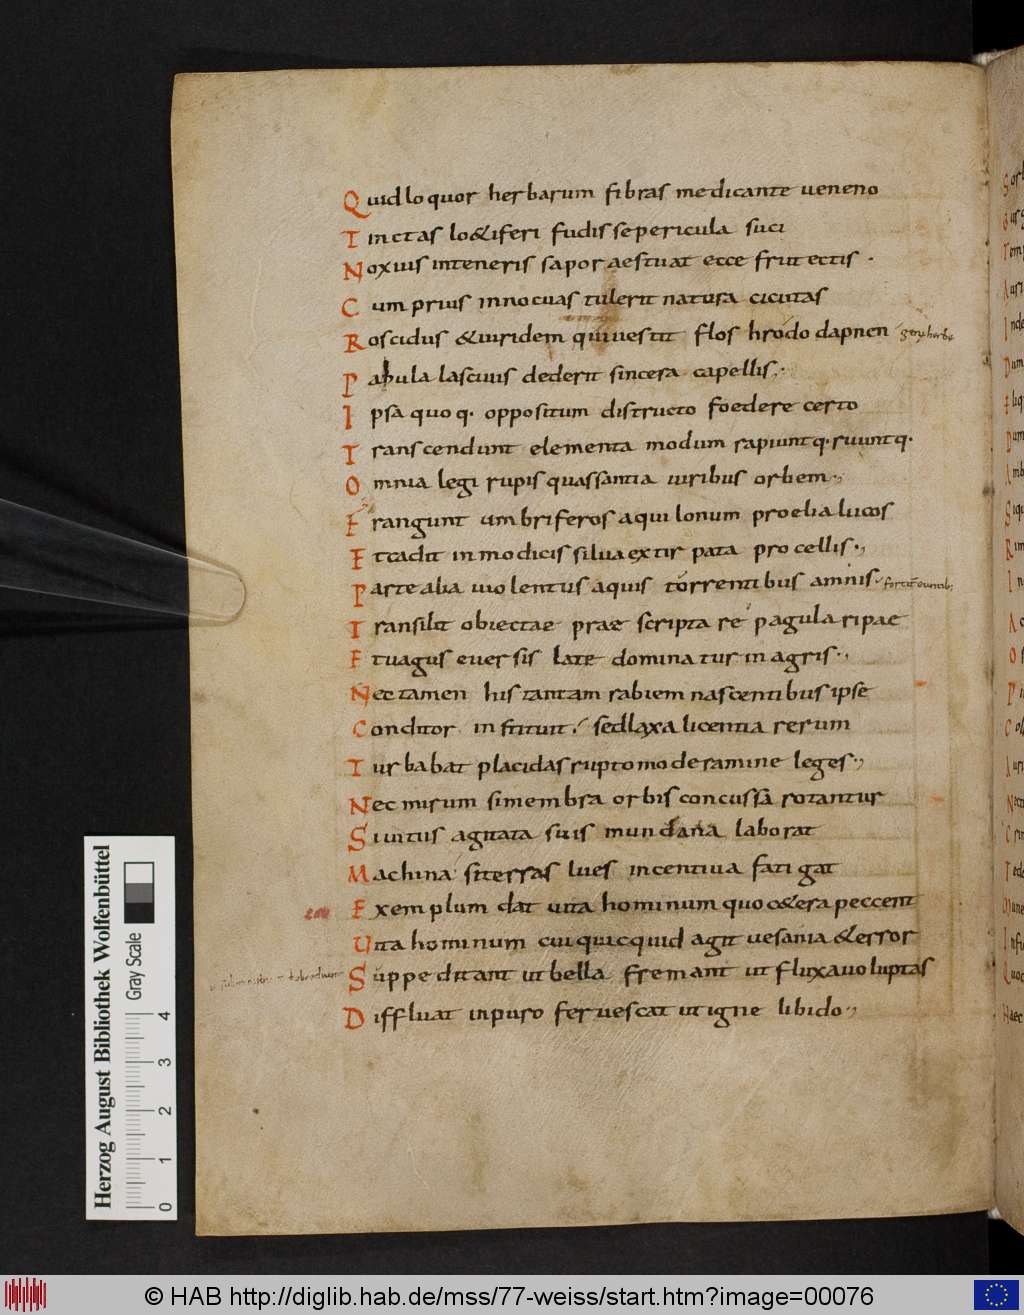 Quid loquor herbarum fibras medicante ueneno
Tinctas lo&iferi fudisse pericula suci
Noxius inteneris sapor aestuat ecce frutectis ·
Cum prius innocuas tulerit natura cicutas
Roscidus &uiridem qui uestit flos hrododapnen
Pabula lasciuis dederit sincera capellis;·
Ipsa quoq· oppositum distructo foedere certo
Transcendunt elementa modum rapiuntq·ruuntq·
Omnia legirupis quassantia uiribus orbem·,
Frangunt umbriferos aquilonum proelia lucos
Et cadit inmodicis silua extirpata procellis·,
Parte alia uiolentus aquis torrentibus amnis
Transilit obiectae praescripta repagula ripae
Et uagus euersis late dominatur in agris·,
Nec tamen his tantam rabiem nascentibus ipse
Conditor instituit; sed laxa licentia rerum
Turbabat placidas rupto moderamine leges·,
Nec mirum si membra orbis concussa rotantur
Si uitiis agitata suis mundana laborat
Machina si terras lues incentiua fatigat
Exemplum dat uita hominum quo c&era peccent
Uita hominum cui quicquid agit uesania &error
Suppeditant ut bella fremant ut fluxa uoluptas
Diffluat inpuro feruescat ut igne libido·,
Herzog August Bibliothek Wolfenbüttel
Gray Scale
0 1 2 3 4
© HAB http://diglib.hab.de/mss/77-weiss/start.htm?image=00076